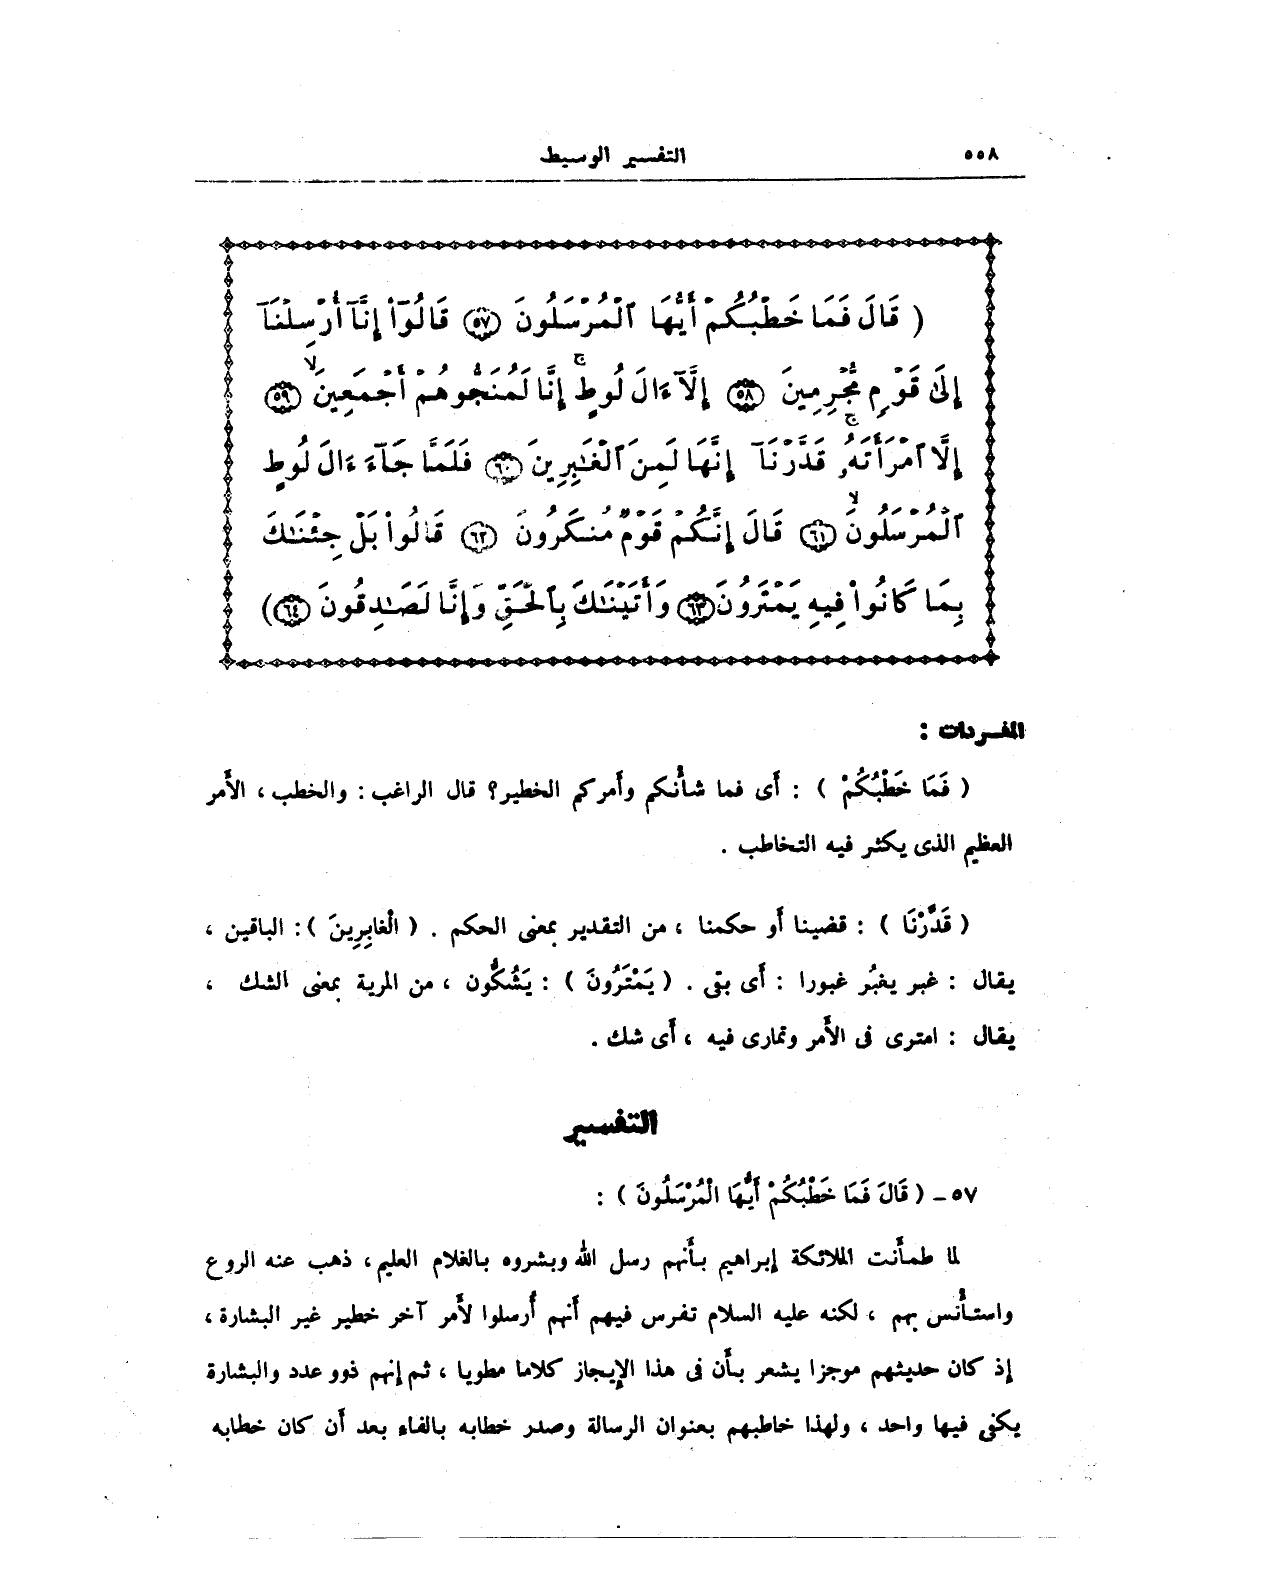 ٥٥٨
التفسير الوسيط
( قَالَ فَمَا خَطْبُكُمْ أَيُّهَا ٱلْمُرْسَلُونَ ٥٧ قَالُوٓا۟ إِنَّآ أُرْسِلْنَآ
إِلَىٰ قَوْمٍ مُّجْرِمِينَ ٥٨ إِلَّآ ءَالَ لُوطٍ ۚ إِنَّا لَمُنَجُّوهُمْ أَجْمَعِينَ ۙ ٥٩
إِلَّا ٱمْرَأَتَهُۥ ۚ قَدَّرْنَآ إِنَّهَا لَمِنَ ٱلْغَـٰبِرِينَ ٦٠ فَلَمَّا جَآءَ ءَالَ لُوطٍ
ٱلْمُرْسَلُونَ ۙ ٦١ قَالَ إِنَّكُمْ قَوْمٌ مُّنكَرُونَ ٦٢ قَالُوا۟ بَلْ جِئْنَـٰكَ
بِمَا كَانُوا۟ فِيهِ يَمْتَرُونَ ٦٣ وَأَتَيْنَـٰكَ بِٱلْحَقِّ وَإِنَّا لَصَـٰدِقُونَ ٦٤ )
المفردات :
( فَمَا خَطْبُكُمْ ) : أَى فما شأْنكم وأَمركم الخطير؟ قال الراغب : والخطب ، الأَمر
العظيم الذى يكثر فيه التخاطب .
( قَدَّرْنَا ) : قضينا أَو حكمنا ، من التقدير بمعنى الحكم . ( الْغابِرِينَ ) : الباقين ،
يقال : غبر يغبُر غبورا : أَى بقى . ( يَمْتَرُونَ ) : يَشُكُّون ، من المرية بمعنى الشك ،
يقال : امترى فى الأَمر وتمارى فيه ، أَى شك .
التفسير
٥٧ - ( قَالَ فَمَا خَطْبُكُمْ أَيُّهَا الْمُرْسَلُونَ ) :
لما طمأَنت الملائكة إبراهيم بأَنهم رسل الله وبشروه بالغلام العليم ، ذهب عنه الروع
واستأْنس بهم ، لكنه عليه السلام تفرس فيهم أَنهم أُرسلوا لأَمر آخر خطير غير البشارة ،
إذ كان حديثهم موجزا يشعر بأَن فى هذا الإِيجاز كلاما مطويا ، ثم إنهم ذوو عدد والبشارة
يكفى فيها واحد ، ولهذا خاطبهم بعنوان الرسالة وصدر خطابه بالفاء بعد أَن كان خطابه